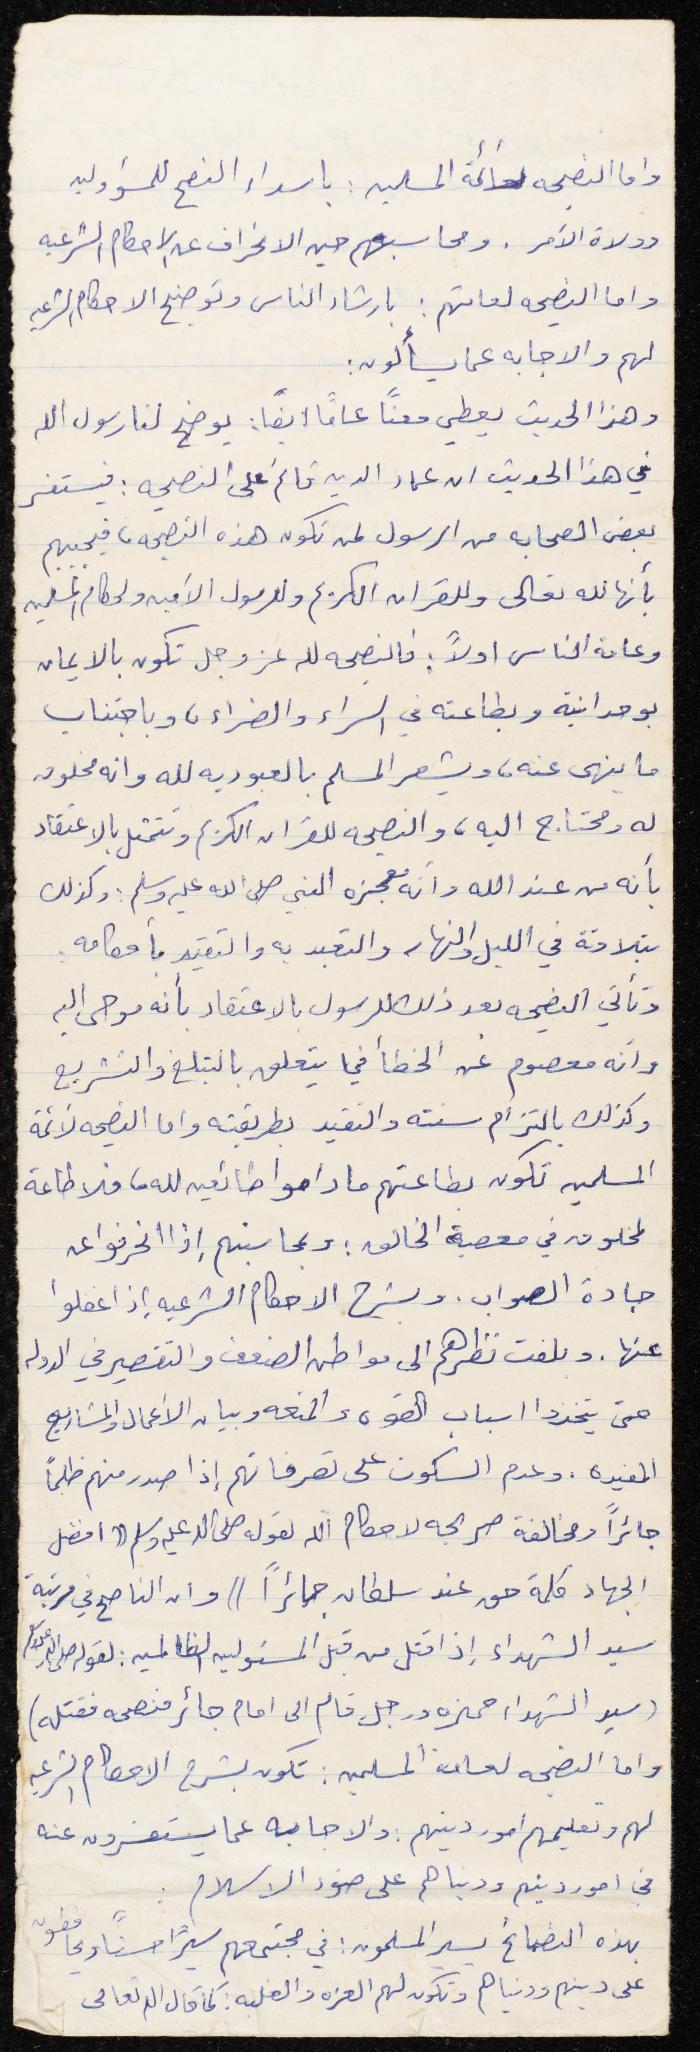 واما النصيحه لأئمة المسلمين : باسداء النصح للمسؤولين
وولاة الأمر . ومحاسبتهم حين الانحراف عن الاحكام الشرعيه
واما النصيحه لعامتهم : بارشاد الناس وتوضيح الاحكام الشرعيه
لهم والاجابه عما يسألون :
وهذا الحديث يعطي معنًّا عامًا ايضًا : يوضح لنا رسول الله
في هذا الحديث ان عماد الدين قائم على النصيحه : فيستفسر
بعض الصحابه من الرسول لمن تكون هذه النصيحه ، فيجيبهم
بأنها لله تعالى وللقران الكريم وللرسول الأمين ولحكام المسلمين
وعامة الناس اولاً : فالنصيحه لله عز وجل تكون بالايمان
بوحدانيته وبطاعته في السراء والضراء ، وباجتناب
ما ينهى عنه ، ويشعر المسلم بالعبوديه لله وانه مخلوق
له ومحتاج اليه ، والنصيحه للقران الكريم وتتمثل بالاعتقاد
بأنه من عند الله وأنه معجزه النبي صلى الله عليه وسلم : وكذلك
بتلاوته في الليل والنهار والتعبد به والتقيد بأحكامه .
وتأتي النصيحه بعد ذلك للرسول بالاعتقاد بأنه موحى اليه
وأنه معصوم عن الخطأ فيما يتعلق بالتبلغ والتشريع
وكذلك بالتزام سنته والتقيد بطريقته واما النصيحه لأئمة
المسلمين تكون بطاعتهم ما داموا طائعين لله ، فلا طاعة
لمخلوق في معصية الخالق : وبمحاسبتهم إذا انحرفوا عن
جادة الصواب . وبشرح الاحكام الشرعيه إذا غفلوا
عنها . وبلفت نظرهم الى مواطن الضعف والتقصير في الدوله
حتى يتخذوا اسباب القوه والمنعه وبيان الأعمال والمشاريع
المفيده . وعدم السكوت على تصرفاتهم إذا صدر منهم ظلمًا
جائراً ومخالفة صريحه لاحكام الله لقوله صلى الله عليه وسلم (( افضل
الجهاد كلمة حق عند سلطان جائراً )) وان الناصح في مرتبة
سيد الشهداء إذا قتل من قبل المسئولين الظالمين : لقوله صلى الله عليه وسلم
(سيد الشهداء حمزه ورجل قام الى امام جائر فنصحه فقتله)
واما النصيحه لعامة المسلمين : تكون بشرح الاحكام الشرعيه
لهم وتعليمهم امور دينهم : والاجابه عما يستفسرون عنه
في امور دينهم ودنياهم على ضوء الاسلام :
بهذه النصائح يسير المسلمون : في مجتمعهم سيرًا حسنًا ويحافظون
على دينهم ودنياهم وتكون لهم العزه والغلبه : كما قال الله تعالى